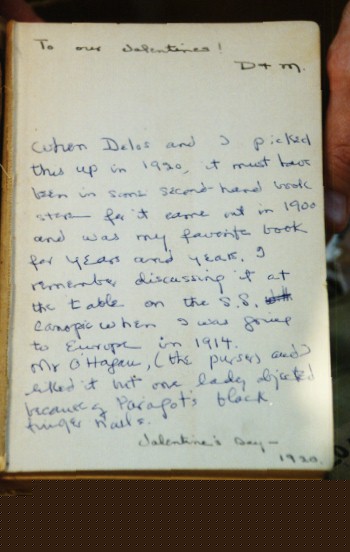 To our Valentines!
D + M.
When Delos and I picked
this up in 1920, it must have
been in some second-hand book
store for it came out in 1900
and was my favorite book
for years and years. I
remember discussing it at
the table on the S.S.
Canopic when I was going
to Europe in 1914.
Mr O'Hagan, (the purser) and I
liked it but one lady objected
because of Paragot's black
finger nails.
Valentine's Day –
1920.